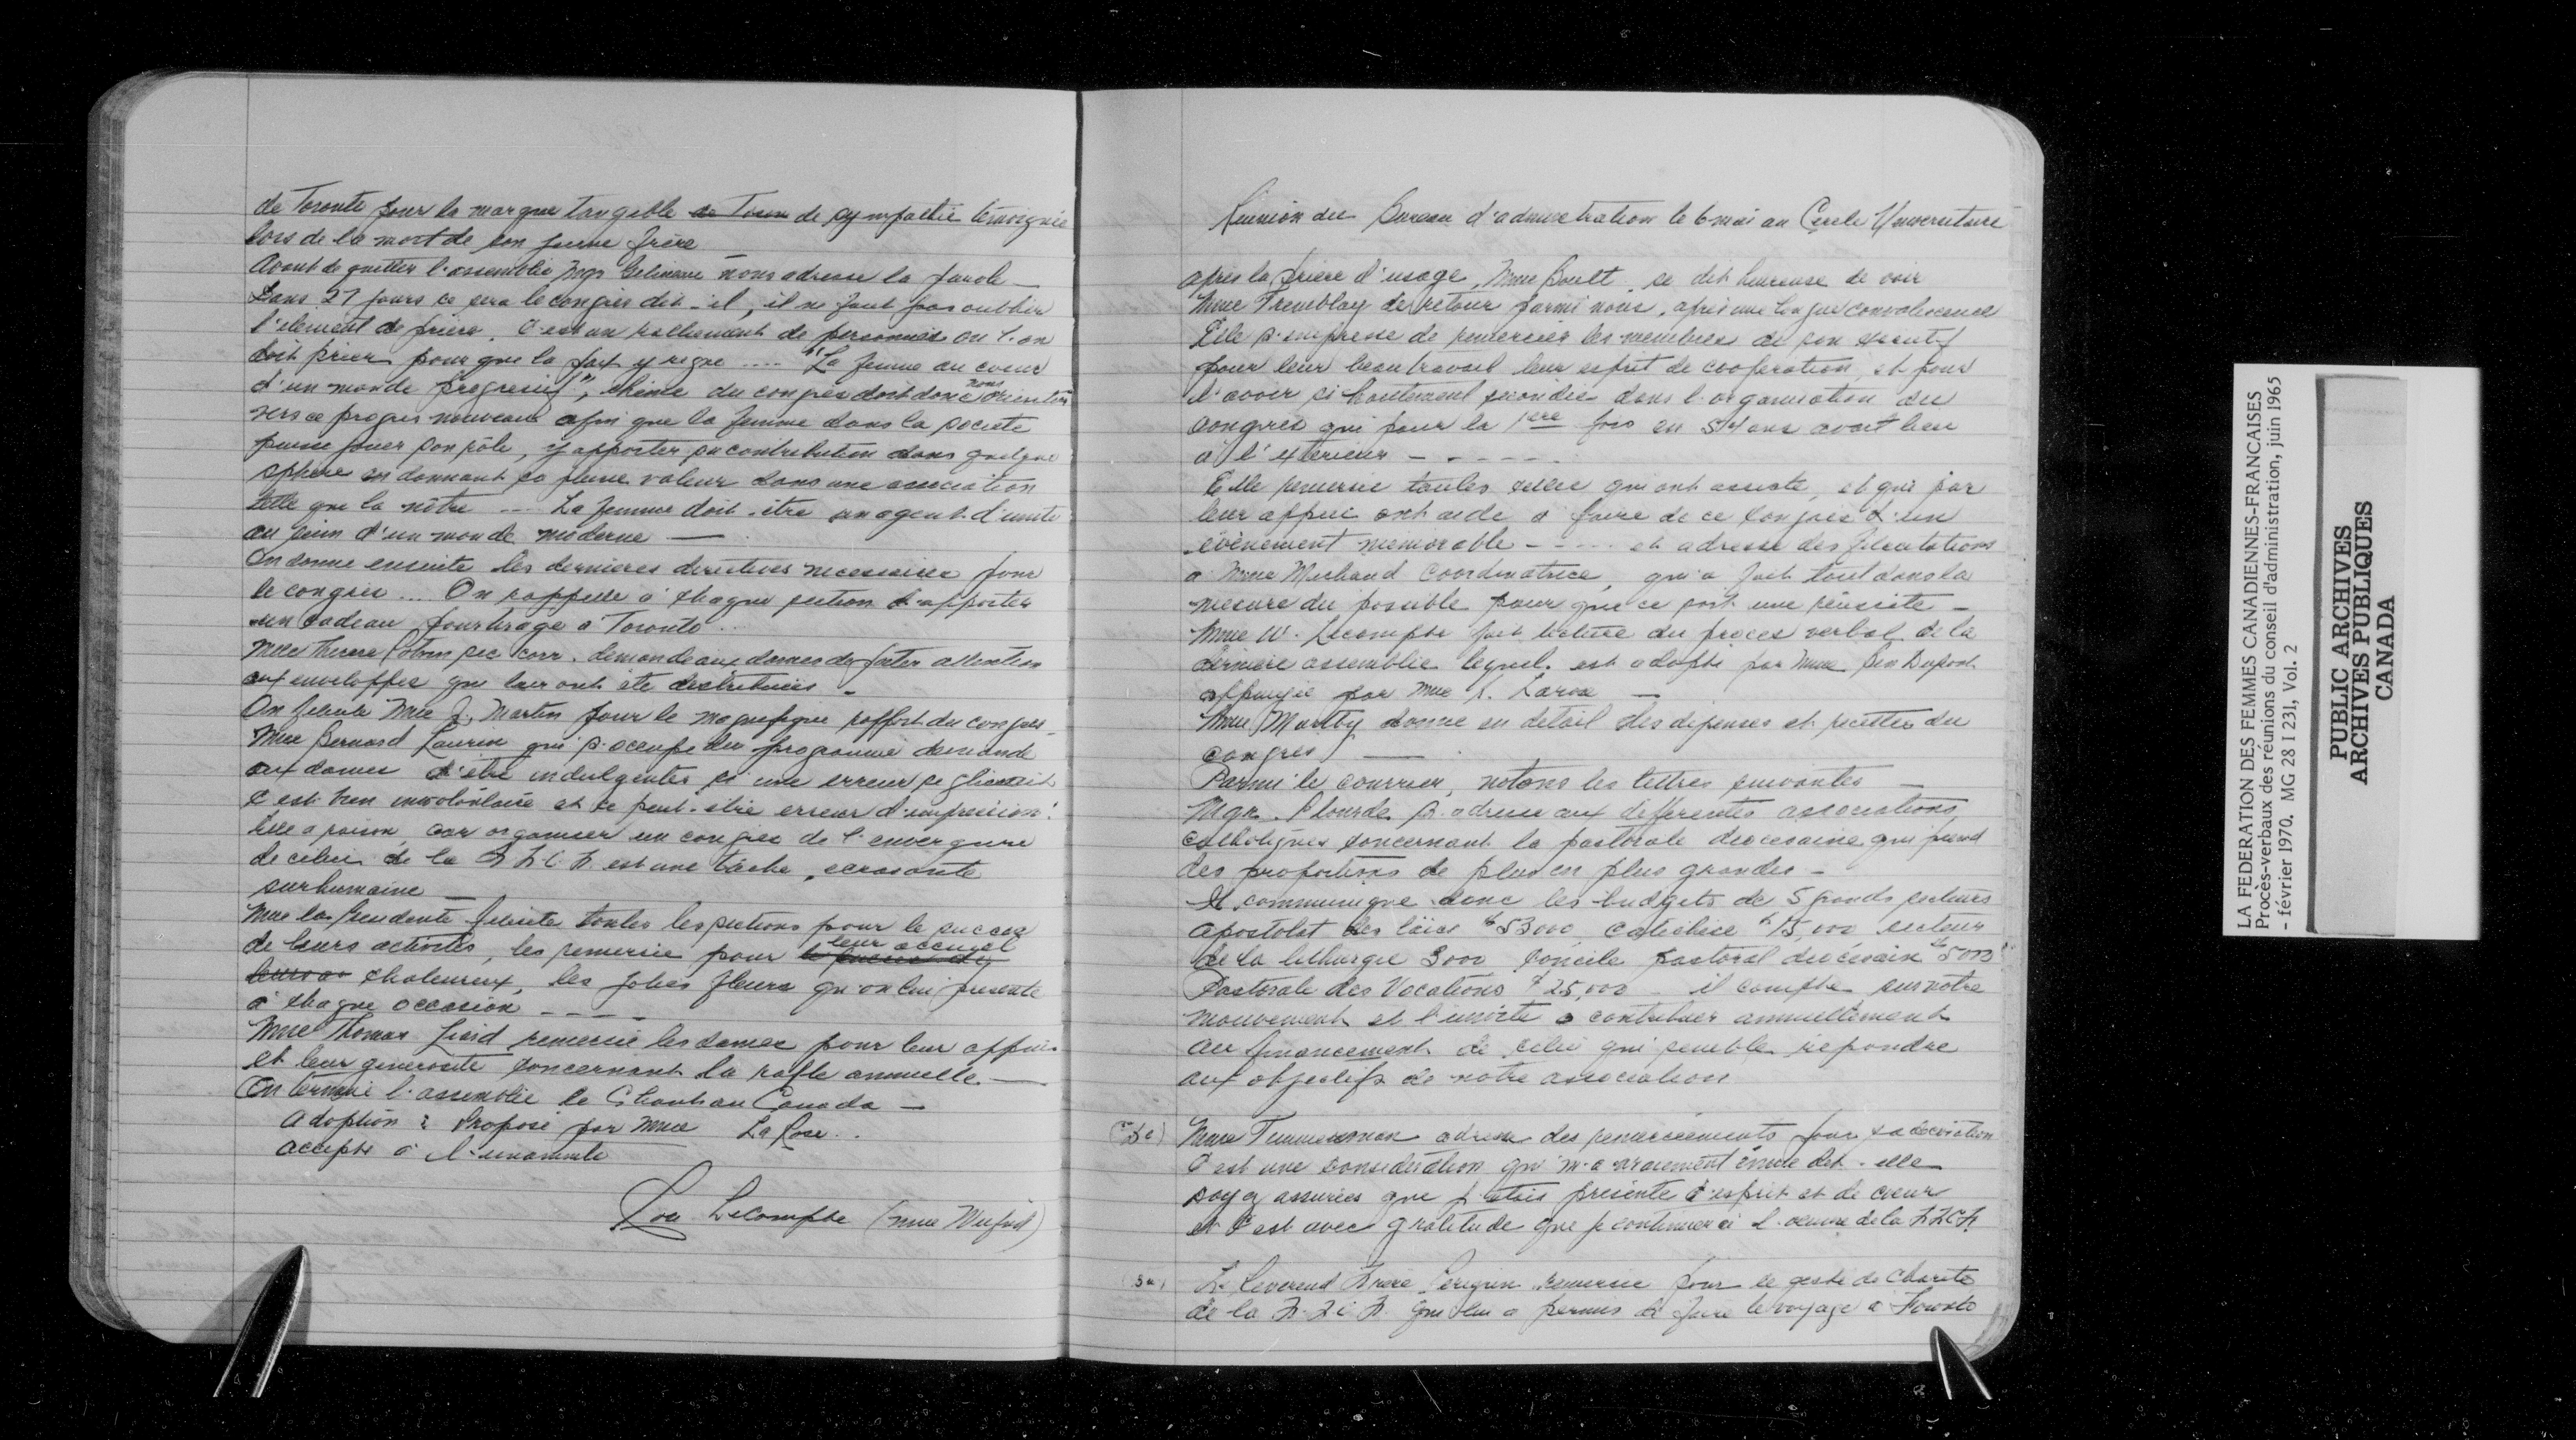 de Toronto pour la marque tangible de Toron de sympathie témoignée
lors de la mort de son jeune frère
Avant de quitter l'assemblée Mgr Gelineau nous adresse la parole —
Dans 27 jours ce sera le congrès dit-il, il ne faut pas oublier
l'element de prière. C'est un ralliement de personnes ou l'on
doit prier pour que la paix y règne .... "La femme au coeur
d'un monde progressif", thème du congrès doit donc nous orienter
vers ce progrès nouveau afin que la femme dans la société
puisse jouer son rôle, y apporter sa contribution dans quelque
sphère en donnant sa pleine valeur dans une association
telle que la nôtre --- La femme doit être un agent d'unité
au sein d'un monde moderne —
On donne ensuite les dernières directives nécessaires pour
le congrès ... On rappelle à chaque section d'apporter
un cadeau pour tirage à Toronto ..
Mme Therese sec corr. demande aux dames de porter attention
aux enveloppes qui leur ont été distribuées -
On félicite Mme J. Martin pour le magnifique rapport du congrès -
Mme Bernard Laurin qui s'occupe du programme demande
aux dames d'être indulgentes si une erreur se glissait
c'est bien involontaire et ce peut-être erreur d'impression!
Elle a raison, car organiser un congrès de l'envergure
de celui de la F.F.C.F. est une tâche, écrasante
surhumaine —
Mme la Présidente félicite toutes les sections pour le succès
de leurs activités, les remercie pour leur accueil
chaleureux, les jolies fleurs qu'on lui présente
à chaque occasion ----
Mme Thomas remercie les dames pour leur appui
et leur générosité concernant la rafle annuelle. —
On termine l'assemblée le Chant au Canada —
Adoption : Proposé par Mme LaRose ..
Accepté à l'unanimité
Lecompte (Mme Wilfrid)
Réunion du Bureau d'administration le 6 mai au Cercle Universitaire
après la prière d'usage, Mme Boult, se dit heureuse de voir
Mme Tremblay de retour parmi nous, après une longue convalescence
Elle s'empresse de remercier les membres de son exécutif
pour leur beau travail leur esprit de coopération, et pour
l'avoir si hautement secondée dans l'organisation du
congrès qui pour la 1ere fois en 54 ans avait lieu
à l'extérieur - - - - - -
Elle remercie toutes celles qui ont assisté, et qui par
leur appui ont aidé à faire de ce congrès un
évènement mémorable - - - - et adresse des félicitations
à Mme Michaud coordinatrice, qui a fait tout dans la
mesure du possible pour que ce soit une réussite -
Mme W. Lecompte fait lecture du procès verbal de la
dernière assemblée lequel est adopté par Mme Dupont
appuyée par Mme Larose —
Mme Manty donne en détail les dépenses et recettes du
congrès —
Parmi le courrier, notons les lettres suivantes —
Mgr. Plourde s'adresse aux differentes associations
catholiques concernant la pastorale diocesaine qui prend
des proportions de plus en plus grandes -
Il communique donc les budgets de 5 grands secteurs
apostolat des laics $53000 catéchèse $15,000 secteur
de la lithurgie 3000 Concile pastoral diocésain $5000
Pastorale des Vocations $25,000 - il compte sur notre
mouvement et l'invite à contribuer annuellement
au financement de celui qui semble répondre
aux objectifs de notre association
Mme Timmerman adresse des remerciements pour sa décoration
C'est une considération qui m'a vraiment émue dit-elle
soyez assurées que j'étais présente d'esprit et de coeur
et c'est avec gratitude que je continuerai l'oeuvre de la F.F.C.F.
Le Révérend Frère remercie pour le geste de charité
de la F.F.C.F. qui lui a permis de faire le voyage à Toronto
LA FEDERATION DES FEMMES CANADIENNES-FRANCAISES
Procès-verbaux des réunions du conseil d'administration, juin 1965
- février 1970. MG 28 I 231, Vol. 2
PUBLIC ARCHIVES
ARCHIVES PUBLIQUES
CANADA